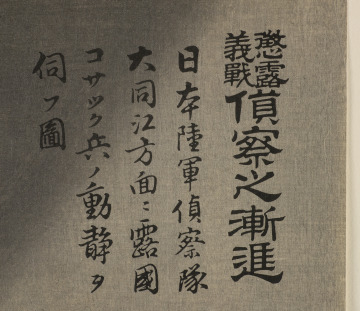 懲露
義戰
偵察之漸進
日本陸軍偵察隊
大同江方面ニ露國
コサック兵ノ動靜ヲ
伺フ圖